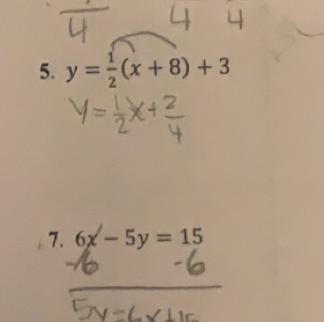 4 4 4
5. y = 1/2(x + 8) + 3
y = 1/2x + 2/4
7. 6x - 5y = 15
-6 -6
5y=6x+15